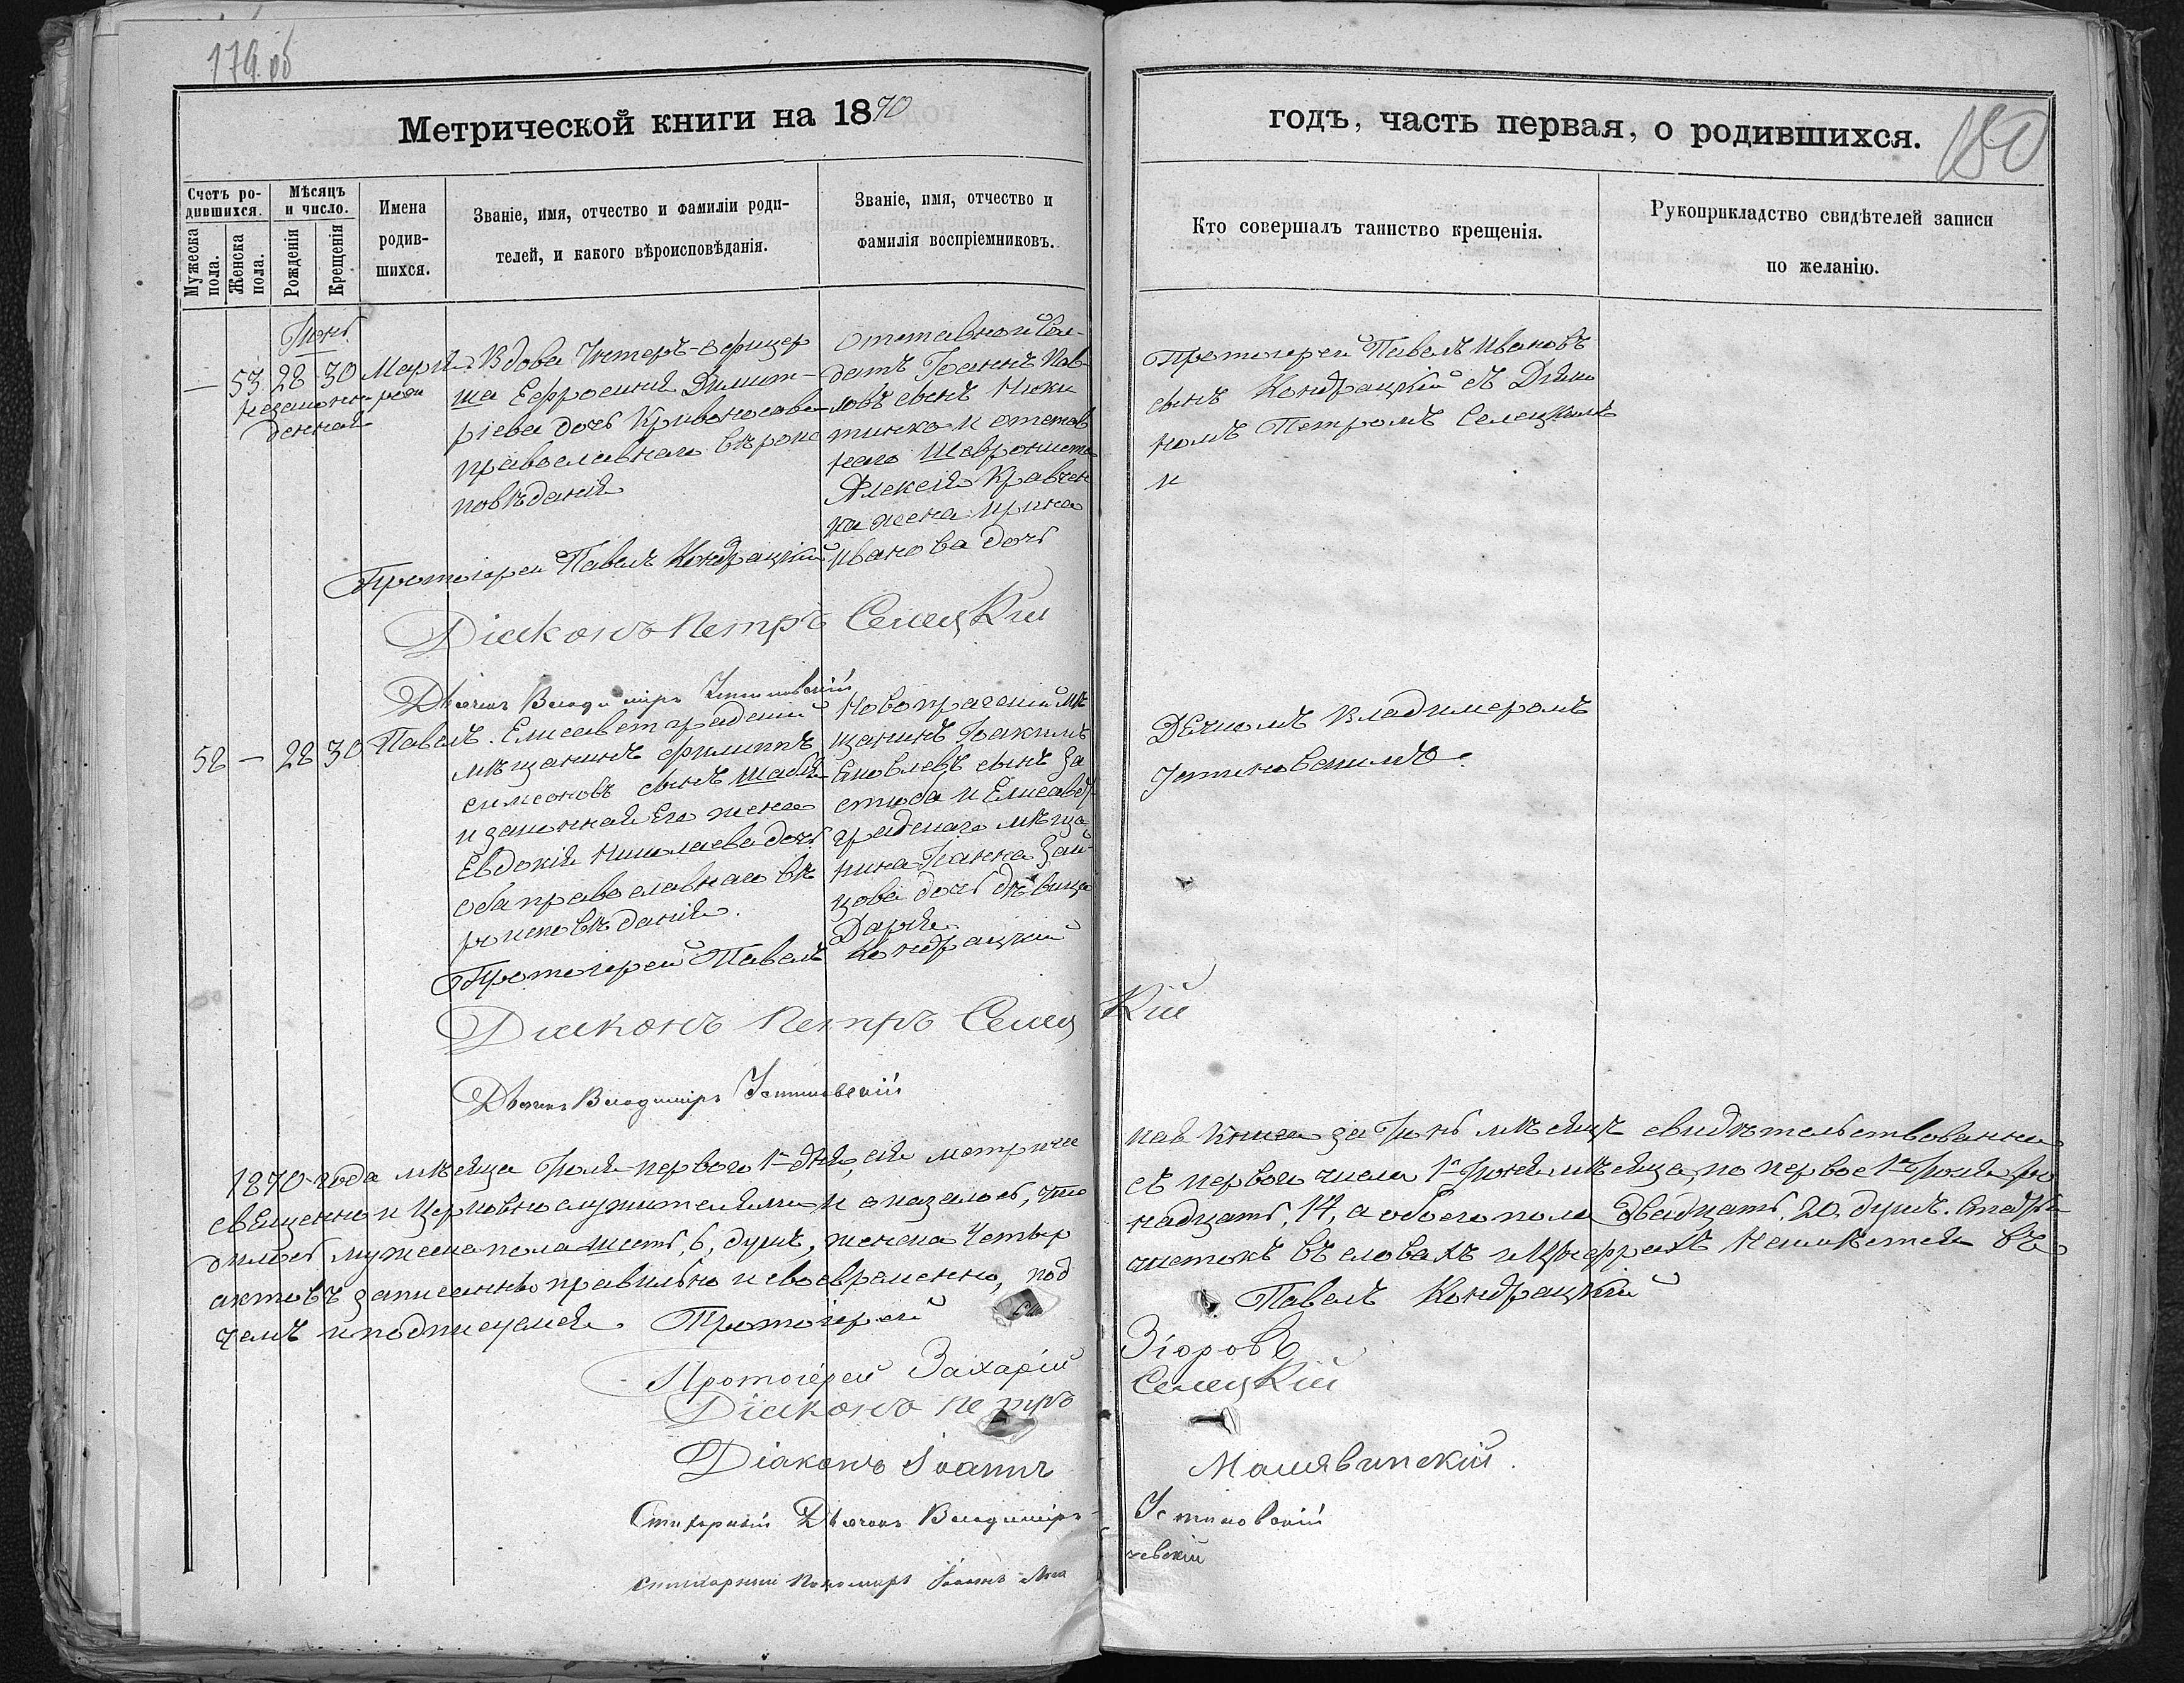 179 об
Метрической книги на 1870
годъ, часть первая, о родившихся.
180
Счетъ ро-
дившихся.
Мужеска пола.
Женска пола.
Мѣсяцъ
и число.
Рожденія
Крещенія
Имена
родив-
шихся.
Званіе, имя, отчество и фамиліи роди-
телей, и какого вѣроисповѣданія.
Званіе, имя, отчество и
фамилія воспріемниковъ.
Кто совершалъ таинство крещенія.
Рукоприкладство свидѣтелей записи
по желанію.
Іюнь
— 53 28 30 Марія
незаконно рож
денная
Вдова Унтеръ-офицер
ша Ефросинія Димит-
ріева дочь Кривоносова
православнаго вѣроис
повѣданія
отставной Сол-
датъ Іоаннъ Пав-
ловъ сынъ Ники
тинко и отстав
наго
Алексія Кравчен
ка жена Ирина
Иванова дочь
Протоіерей Павелъ Ивановъ
сынъ Кондрацкій съ Діяко
номъ Петромъ Селецкимъ
и
Протоіерей Павелъ Кондрацкій
Діаконъ Петръ Селецкій
Дьячокъ Владиміръ Устиновскій
58 — 28 30 Павелъ.
Елисаветградскій
мѣщанинъ Филиппъ
симеоновъ сынъ
и законная Его жена
Евдокія Николаева дочь
оба православнаго вѣ
роисповѣданія.
Новопрагскій мѣ
щанинъ Іоакимъ
Яковлевъ сынъ За
стюба и Елисавет
градскаго мѣща
нина Іоанна Зай
цова дочь дѣвица
Дарія
Дѣчкомъ Владимеромъ
Устиновскимъ.
Протоіерей Павелъ Кондрацкій
Діаконъ Петръ Селецкій
Дьячокъ Владиміръ Устиновскій
1870 года мѣсяца Іюля перваго 1го дня, сія метричес
кая Книга за Іюнь мѣсяцъ свидѣтельствованна
священно и Церковнослужителями и оказалось, что
съ перваго числа 1го Іюня мѣсяца, по первое 1го Іюля ро
дилось мужеска пола шесть, 6, душъ, женска Четыр
надцать, 14, а обоего пола двадцать, 20, душъ.
актовъ записанно правильно и своевременно, под
чистокъ въ словахъ и Цыфрахъ Неимѣется въ
чемъ и подписуемся. Протоіерей Павелъ Кондрацкій
Протоіерей Захарій Зіоровъ
Діаконъ Петръ Селецкій
Діаконъ Іоаннъ Малявинскій.
Стихарный Дьячокъ Владиміръ Устиновскій
стихарный Пономарь Іоаннъ
чевскій